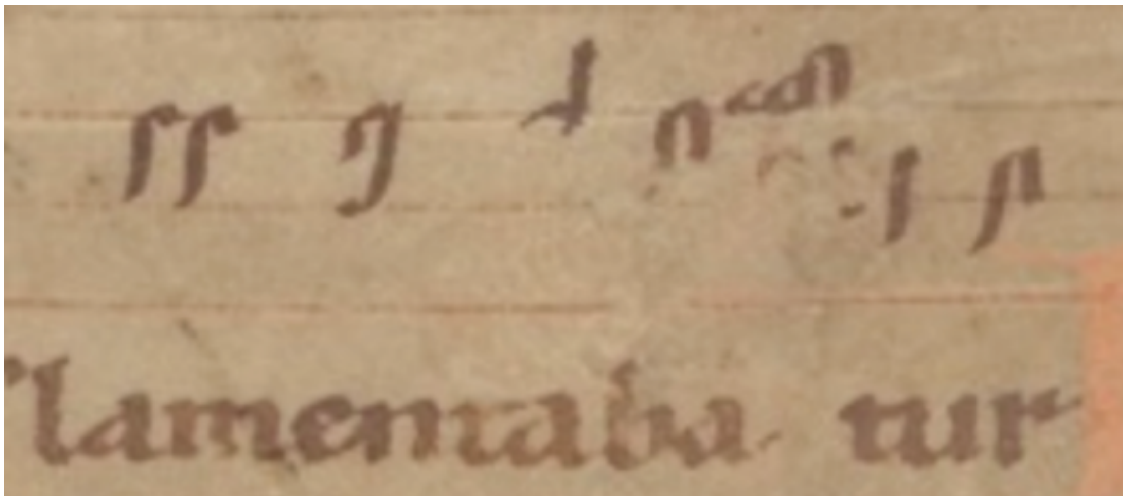 lamentaba tur